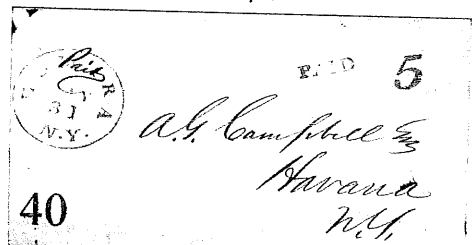 Paid
RA
31
N.Y.
PAID 5
A.G. Campbell Esq
Havana
N.Y.
40